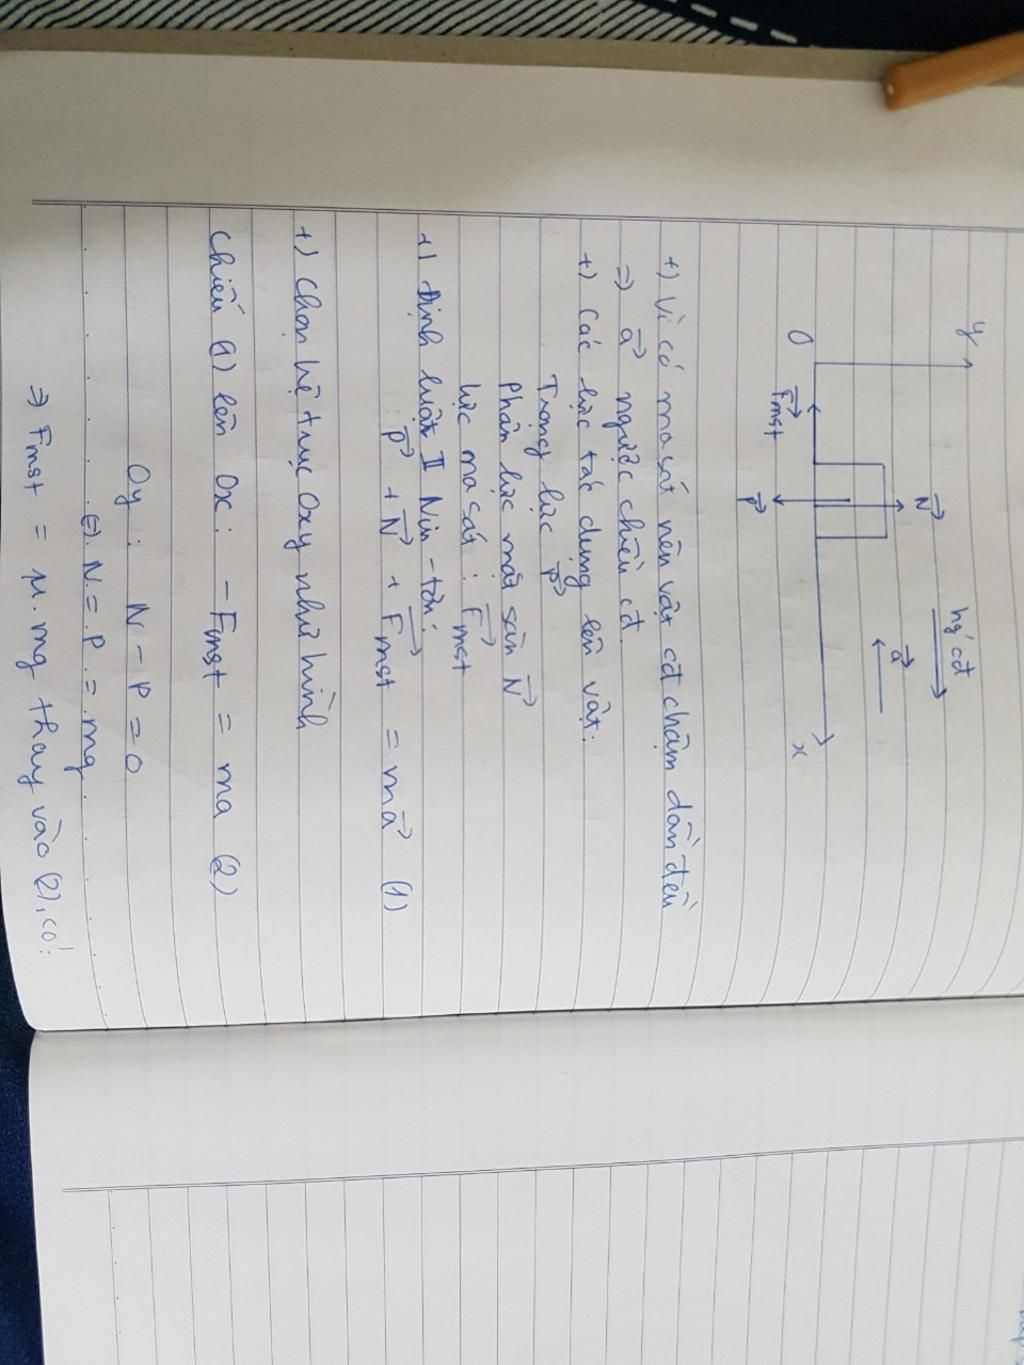 y
N→
hg' cđ
a→
O
x
F→mst
P→
+) Vì có ma sát nên vật cđ chậm dần đều
=) a→ ngược chiều cđ.
+) Các lực tác dụng lên vật:
Trọng lực P→
Phản lực mặt sàn N→
lực ma sát: F→mst
+) Định luật II Niu-tơn:
P→ + N→ + F→mst = ma→ (1)
+) Chọn hệ trục Oxy như hình
Chiếu (1) lên Ox: -Fmst = ma (2)
Oy: N - P = 0
(=) N = P = mg
=> Fmst = μ.mg thay vào (2), có: